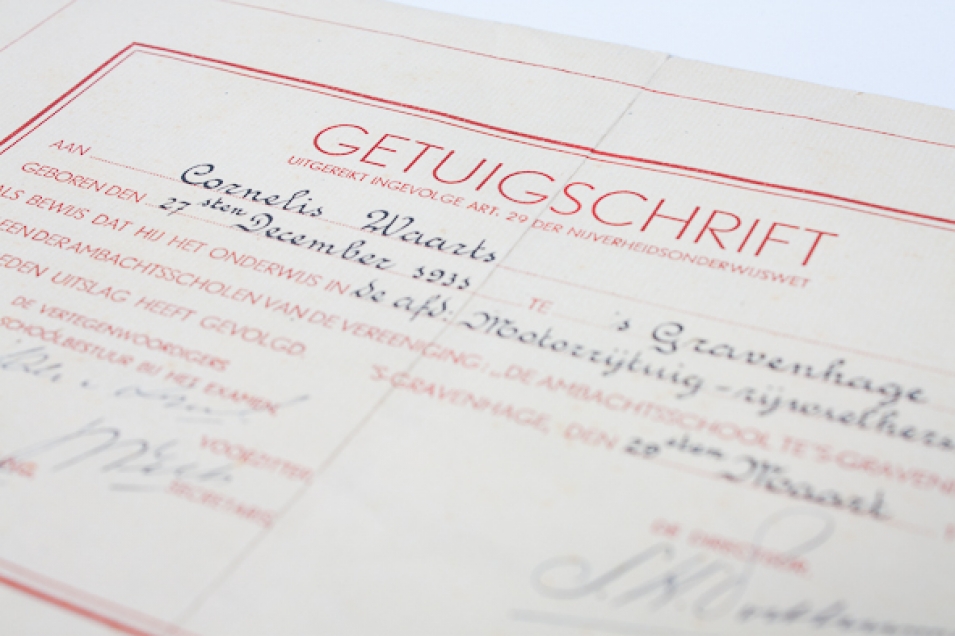 GETUIGSCHRIFT
UITGEREIKT INGEVOLGE ART. 29 DER NIJVERHEIDSONDERWIJSWET
AAN Cornelis Waarts
GEBOREN DEN 27 sten December 1931 TE 's Gravenhage
ALS BEWIJS DAT HIJ HET ONDERWIJS IN de afd: Motorrijtuig-rijwielhers
EEN DER AMBACHTSSCHOLEN VAN DE VEREENIGING: „DE AMBACHTSSCHOOL TE 'S-GRAVEN
EDEN UITSLAG HEEFT GEVOLGD
'S-GRAVENHAGE, DEN 20 sten Maart
DE VERTEGENWOORDIGERS
SCHOOLBESTUUR BIJ HET EXAMEN
VOORZITTER
SECRETARIS
DE DIRECTEUR